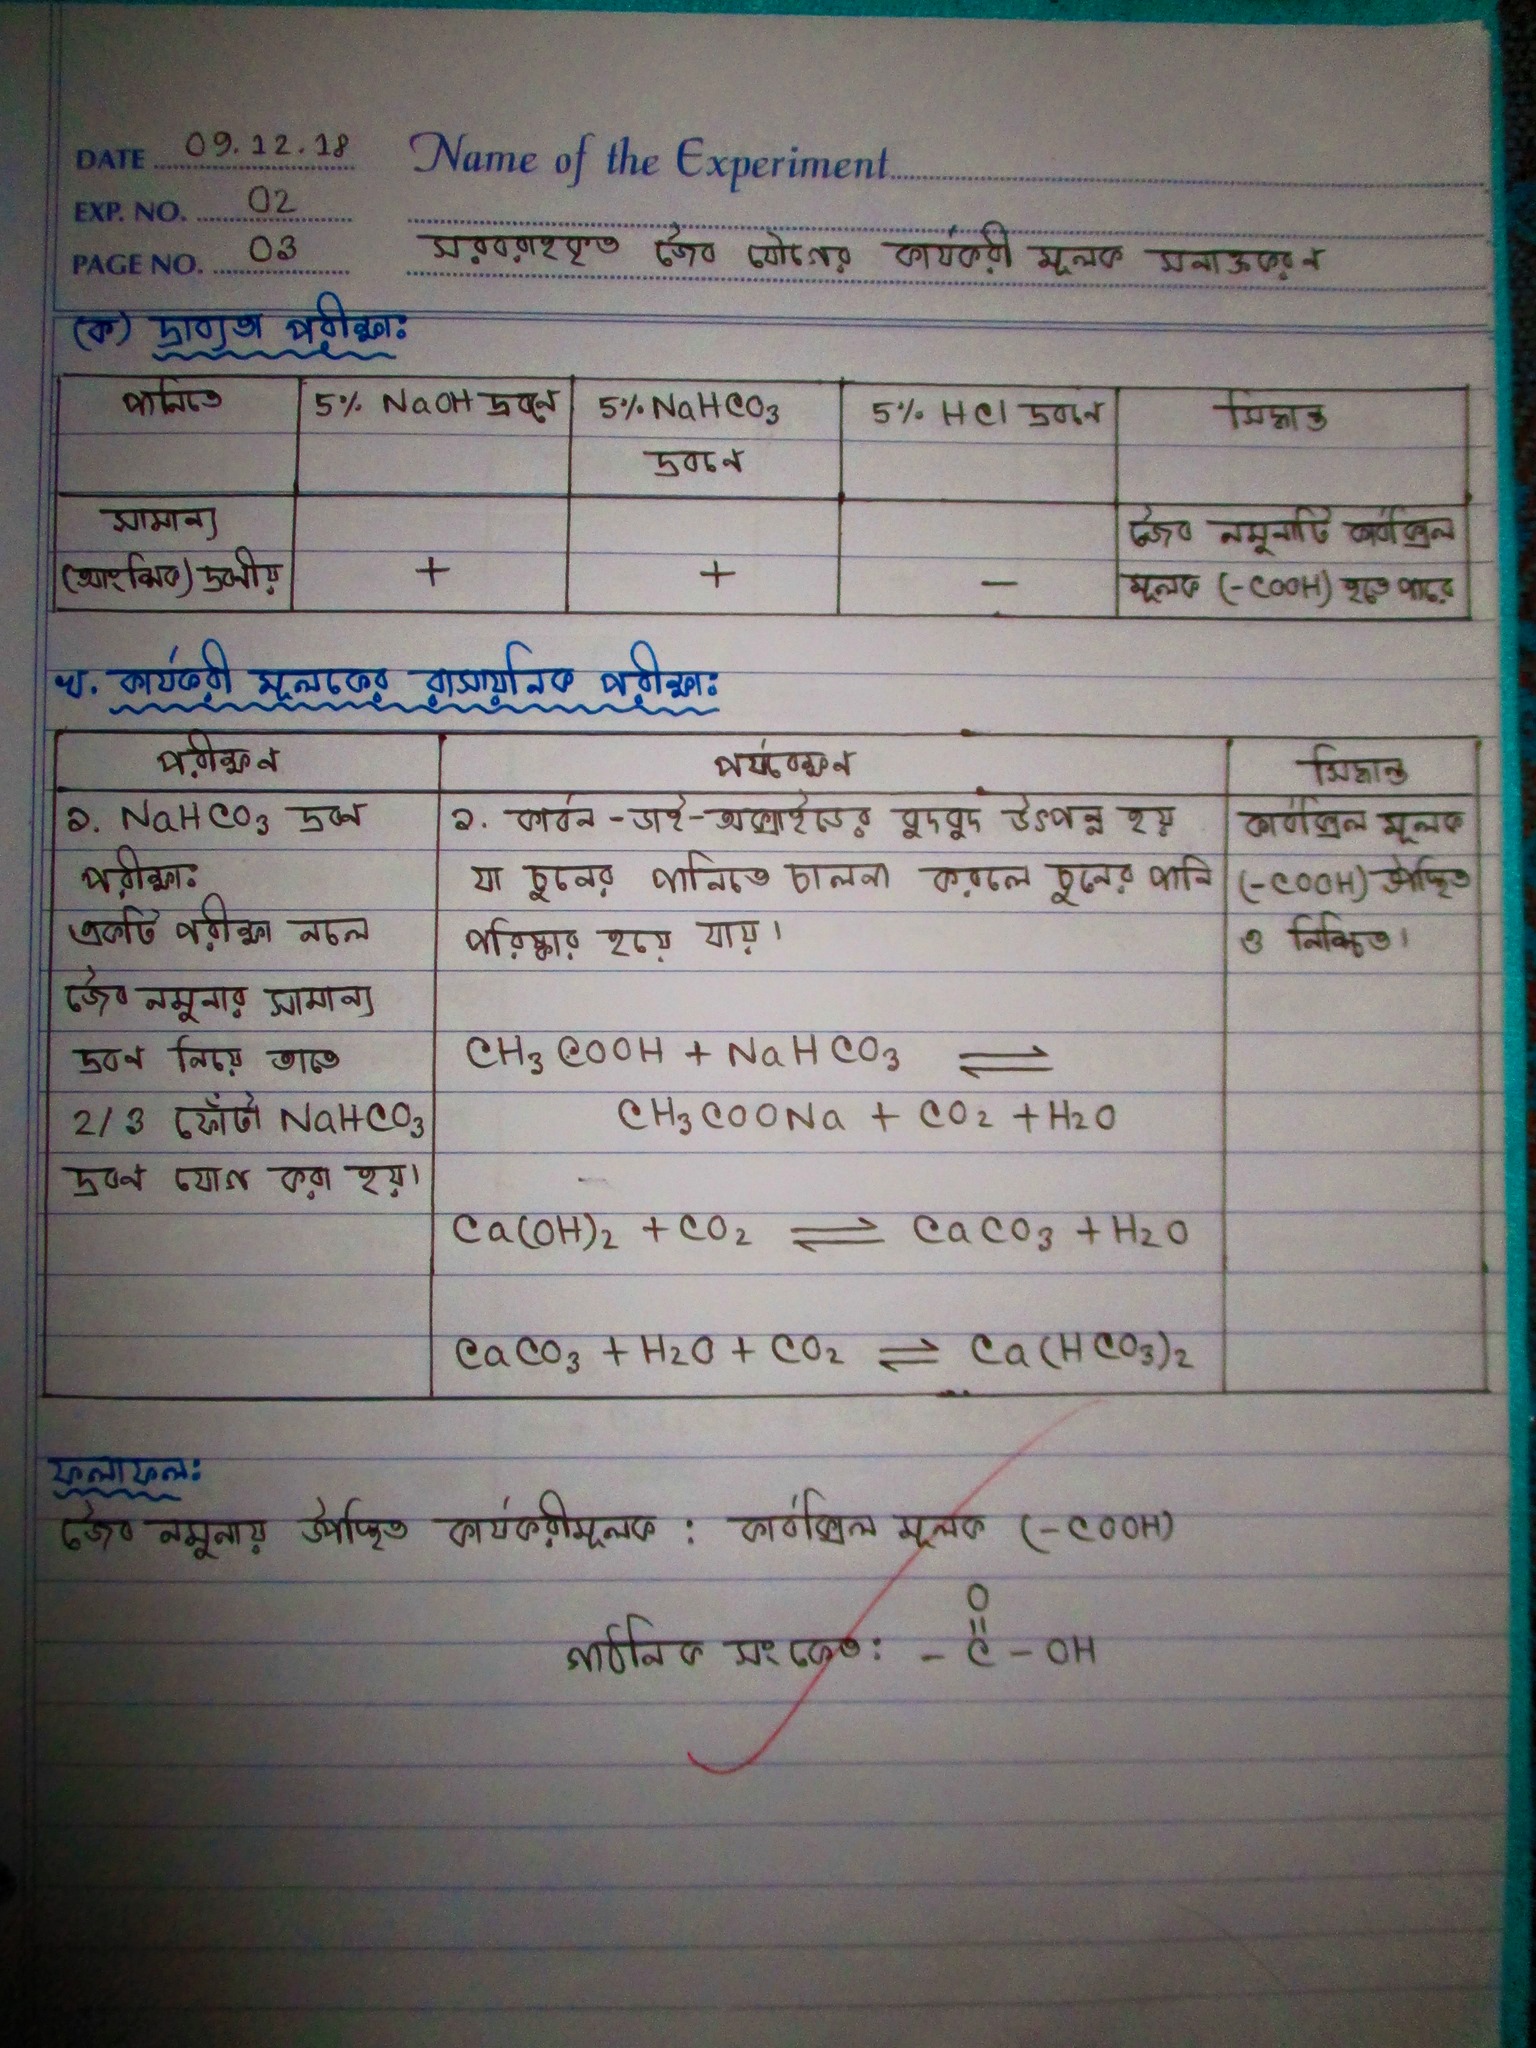 DATE 09.12.18
Name of the Experiment
EXP. NO. 02
PAGE NO. 03
সরবরাহকৃত জৈব যৌগের কার্যকরী মূলক সনাক্তকরণ
(ক) দ্রাব্যতা পরীক্ষা:
পানিতে 5% NaOH দ্রবনে 5% NaHCO3 দ্রবনে 5% HCl দ্রবনে সিদ্ধান্ত
সামান্য (আংশিক) দ্রবণীয় + + − জৈব নমুনাটি কার্বক্সিল মূলক (-COOH) হতে পারে
খ. কার্যকরী মূলকের রাসায়নিক পরীক্ষা:
পরীক্ষন পর্যবেক্ষন সিদ্ধান্ত
১. NaHCO3 দ্রবন
পরীক্ষা:
একটি পরীক্ষা নলে
জৈব নমুনার সামান্য
দ্রবণ নিয়ে তাতে
2/3 ফোঁটা NaHCO3
দ্রবণ যোগ করা হয়।
১. কার্বন-ডাই-অক্সাইডের বুদবুদ উৎপন্ন হয়
যা চুনের পানিতে চালনা করলে চুনের পানি
পরিষ্কার হয়ে যায়।
CH3COOH + NaHCO3 ⇌
CH3COONa + CO2 + H2O
Ca(OH)2 + CO2 ⇌ CaCO3 + H2O
CaCO3 + H2O + CO2 ⇌ Ca(HCO3)2
কার্বক্সিল মূলক
(-COOH) উপস্থিত
ও নিশ্চিত।
ফলাফল:
জৈব নমুনায় উপস্থিত কার্যকরীমূলক : কার্বক্সিল মূলক (-COOH)
গাঠনিক সংকেত:
O
=
- C - OH